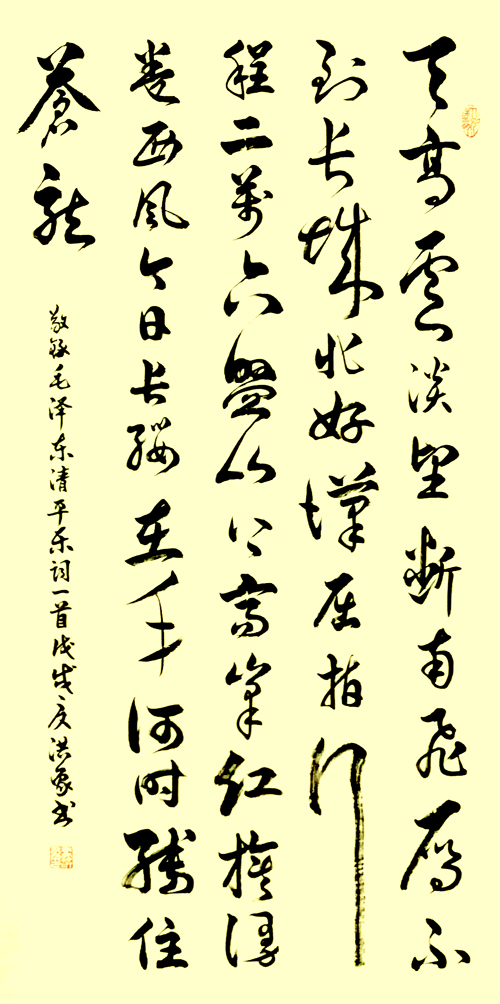 天高雲淡望斷南飛雁不
到长城非好漢屈指行
程二萬六盤山上高峯红旗漫
卷西风今日长缨在手何时缚住
蒼龍
敬録毛泽东清平乐词一首戊戌夏洪象书